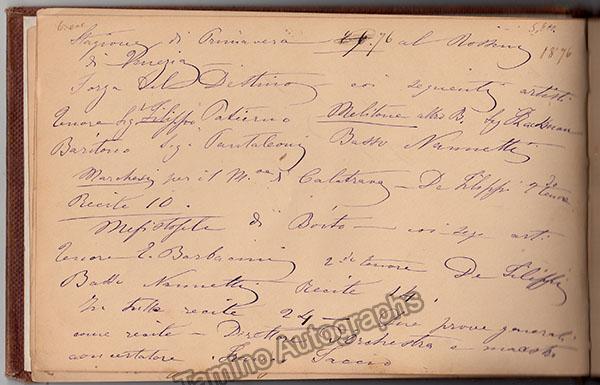 1876
Stagione di Primavera 76 al Rossini
di Venezia
Forza del Destino coi seguenti artisti
Tenore Sig Filippo Patierno Melitone altro B. Sig
Baritono Sig. Pantaleoni Basso Nannetti
Marchesi per il M. di Calatrava - De Filippi 2° tenore
Recite 10.
Mefistofele di Boito - coi seg. arti.
Tenore E. Barbacini 2do tenore De Filippi
Basso Nannetti Recite 14
In tutte recite 24 - prove generali
come recite - Direttore Orchestra e maestro
concertatore Franco Faccio
Tamino Autographs